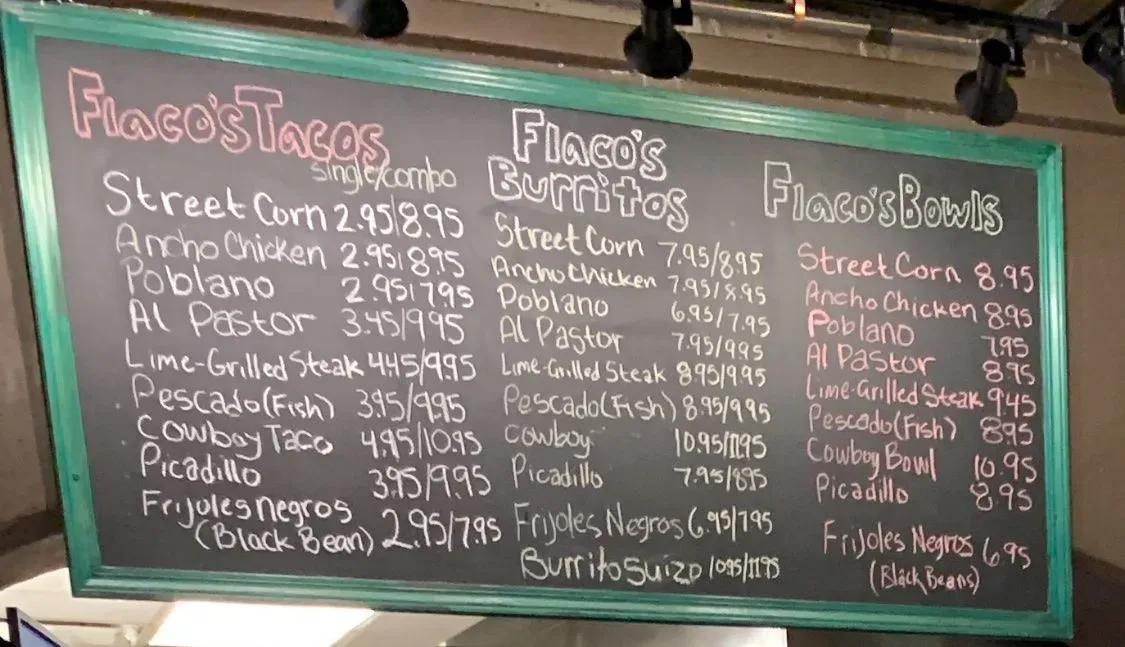 Flaco's Tacos
single/combo
Street Corn 2.95/8.95
Ancho Chicken 2.95/8.95
Poblano 2.95/7.95
Al Pastor 3.45/9.95
Lime-Grilled Steak 4.45/9.95
Pescado (Fish) 3.95/9.95
Cowboy Taco 4.95/10.95
Picadillo 3.95/9.95
Frijoles negros
(Black Bean) 2.95/7.95
Flaco's
Burritos
Street Corn 7.95/8.95
Ancho Chicken 7.95/8.95
Poblano 6.95/7.95
Al Pastor 7.95/9.95
Lime-Grilled Steak 8.95/9.95
Pescado (Fish) 8.95/9.95
Cowboy 10.95/11.95
Picadillo 7.95/8.95
Frijoles Negros 6.95/7.95
Burrito Suizo 10.95/11.95
Flaco's Bowls
Street Corn 8.95
Ancho Chicken 8.95
Poblano 7.95
Al Pastor 8.95
Lime-Grilled Steak 9.45
Pescado (Fish) 8.95
Cowboy Bowl 10.95
Picadillo 8.95
Frijoles Negros 6.95
(Black Beans)